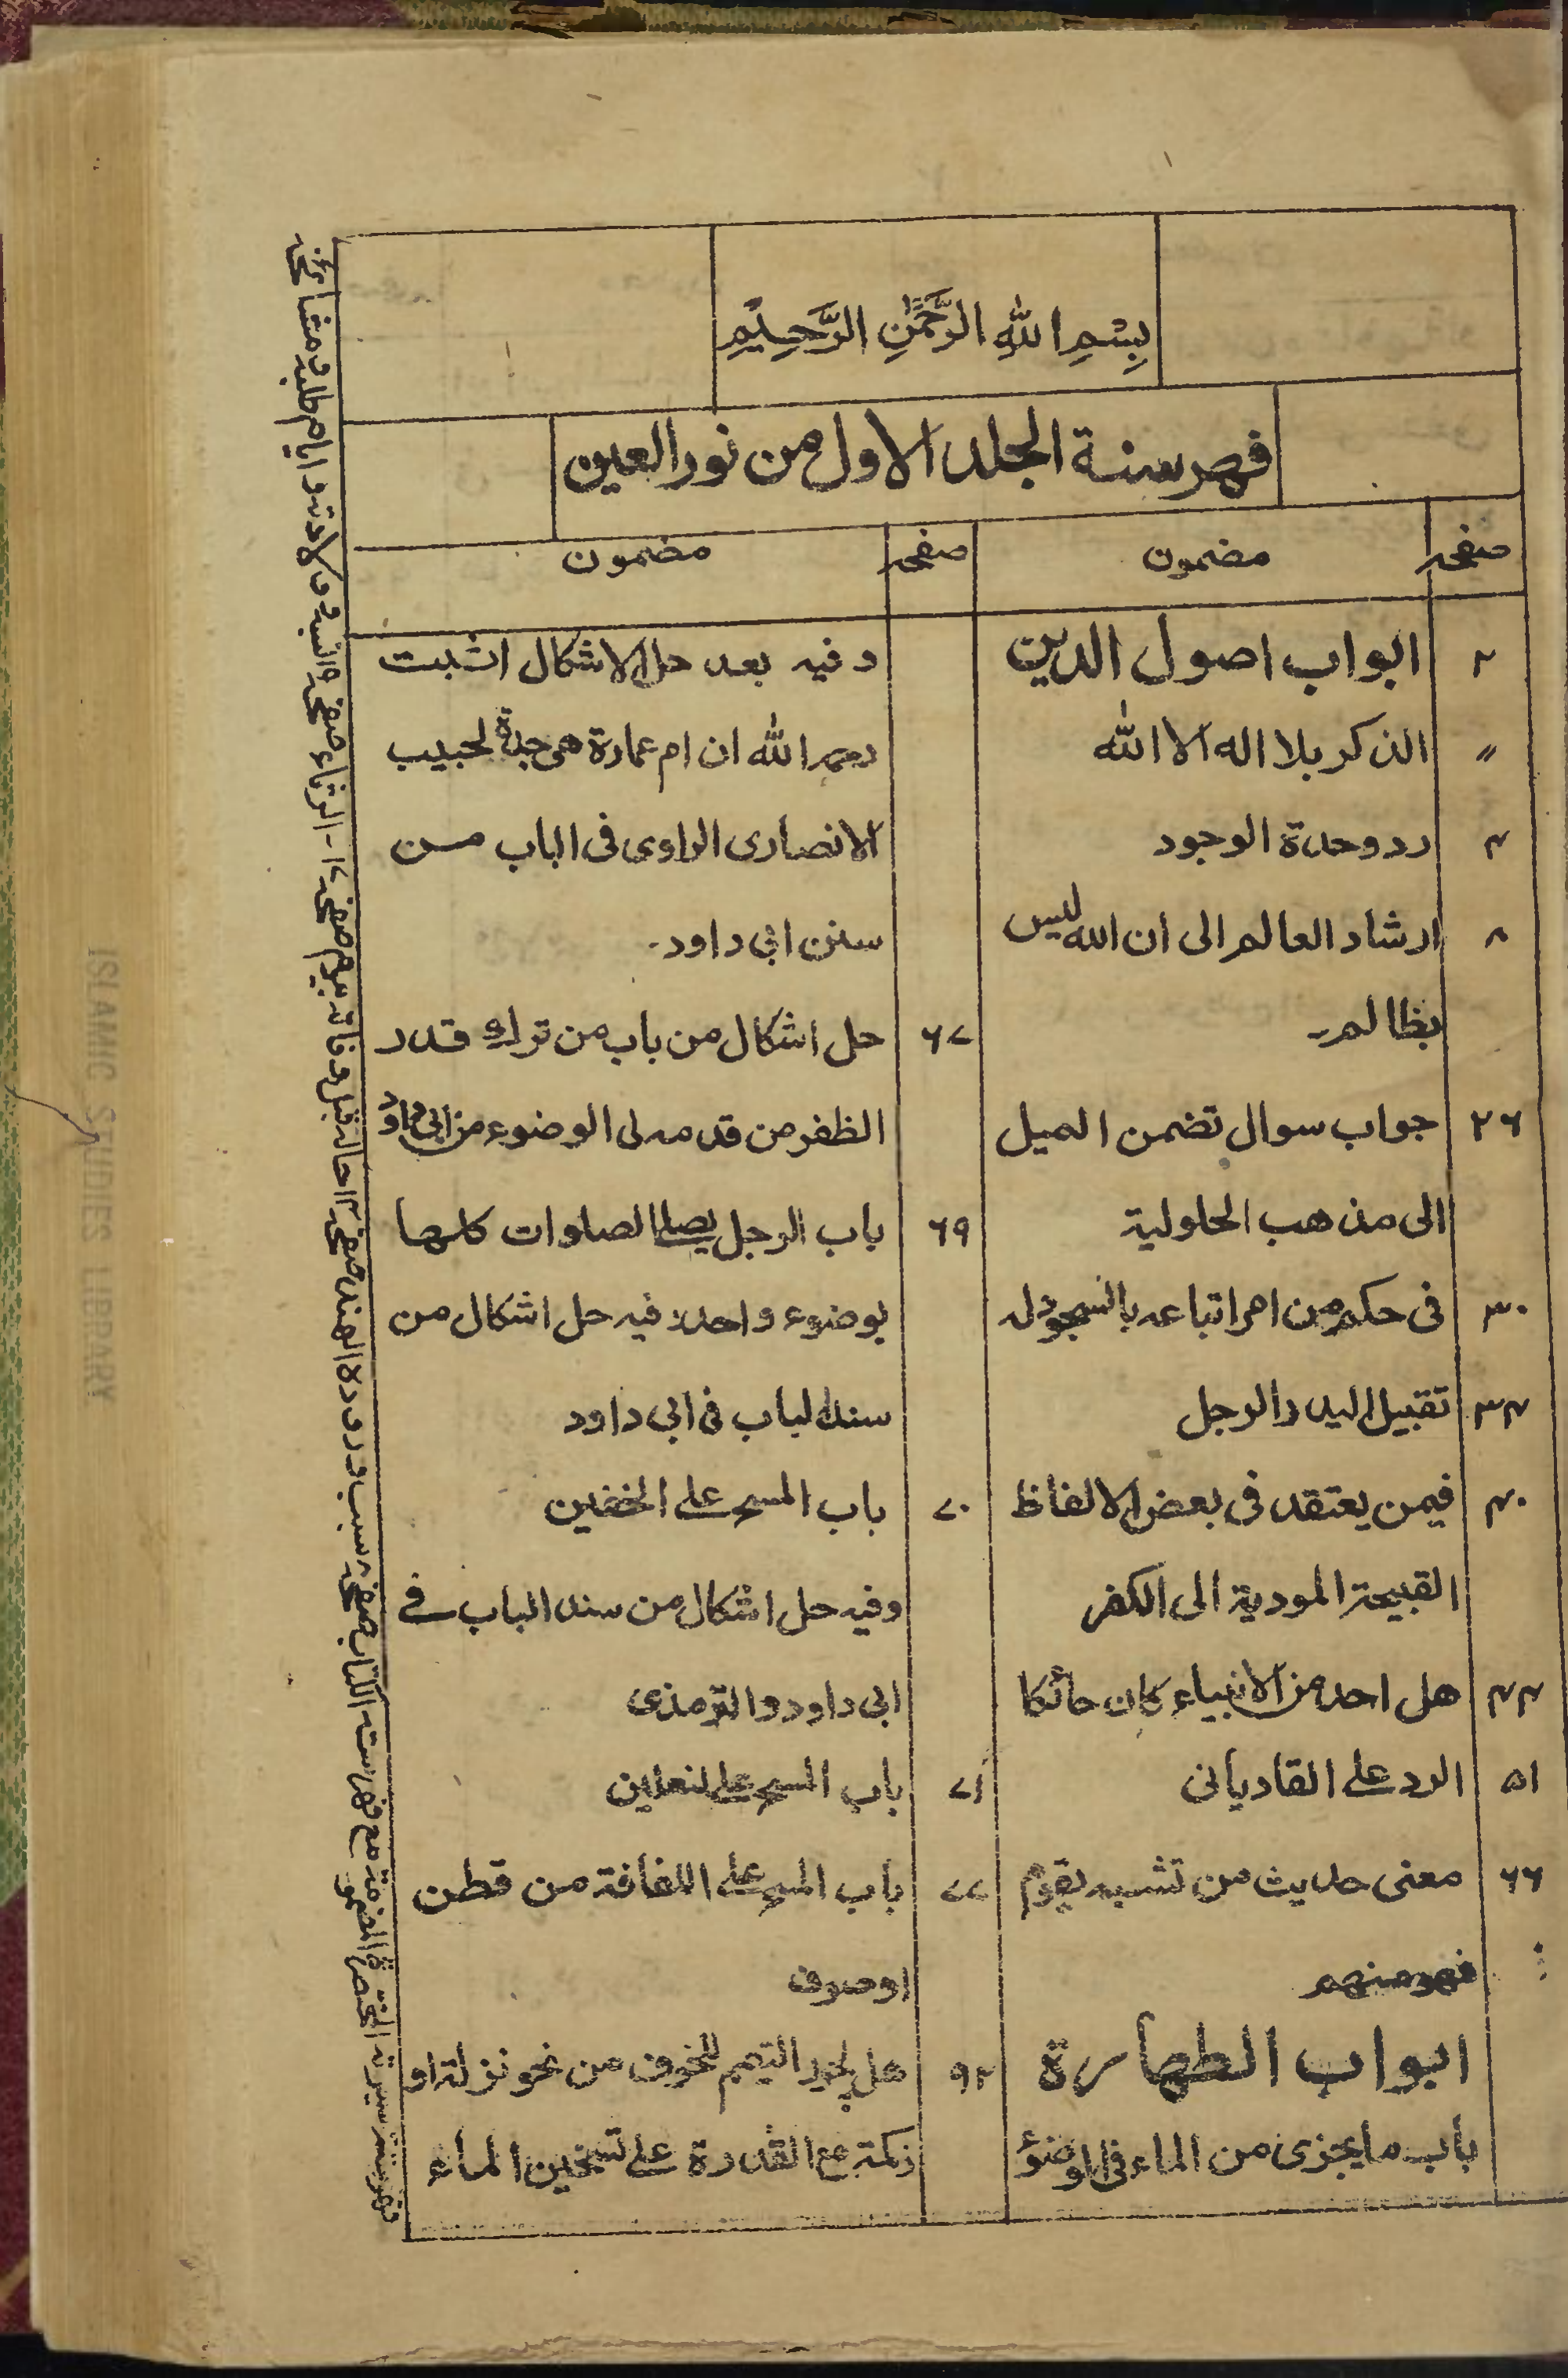 بِسْمِ اللّٰهِ الرَّحْمٰنِ الرَّحِيْمِ
فهرسنة الجلد الاول من نور العين
صفحہ مضمون
۲ ابواب اصول الدين
〃 الذكر بلا اله الا الله
۴ رد وحدة الوجود
۸ ارشاد العالم الى ان الله ليس
بظالم۔
۲۶ جواب سوال تضمن الميل
الى مذهب الحلولية
۳۰ فى حكم من امر اتباعه بالسجود له
۳۴ تقبيل اليد والرجل
۴۰ فيمن يعتقد فى بعض الالفاظ
القبيحة المودية الى الكفر
۴۴ هل احد من الانبياء كان حائكا
۵۱ الرد على القاديانى
۶۶ معنى حديث من تشبه بقوم
فهو منهم
ابواب الطهارة
باب ما يجزى من الماء فى الوضوء
صفحہ مضمون
و فيه بعد حل الاشكال اثبت
رحمه الله ان ام عمارة هى جدة لحبيب
الانصارى الراوى فى الباب من
سنن ابى داود۔
۶۷ حل اشكال من باب من ترك قدر
الظفر من قدمه لى الوضوء من ابى داؤد
۶۹ باب الرجل يصلى الصلوات كلها
بوضوء واحد فيه حل اشكال من
سند الباب فى ابى داود
۷۰ باب المسح على الخفين
وفيه حل اشكال من سند الباب فے
ابى داود والترمذى
۷۱ باب المسح على النعلين
۷۷ باب المسح على اللفافة من قطن
اوصوف
۹۲ هل يجوز التيمم للخوف من نحو نزلة او
زكمة مع القدرة على تسخين الماء
ISLAMIC STUDIES LIBRARY